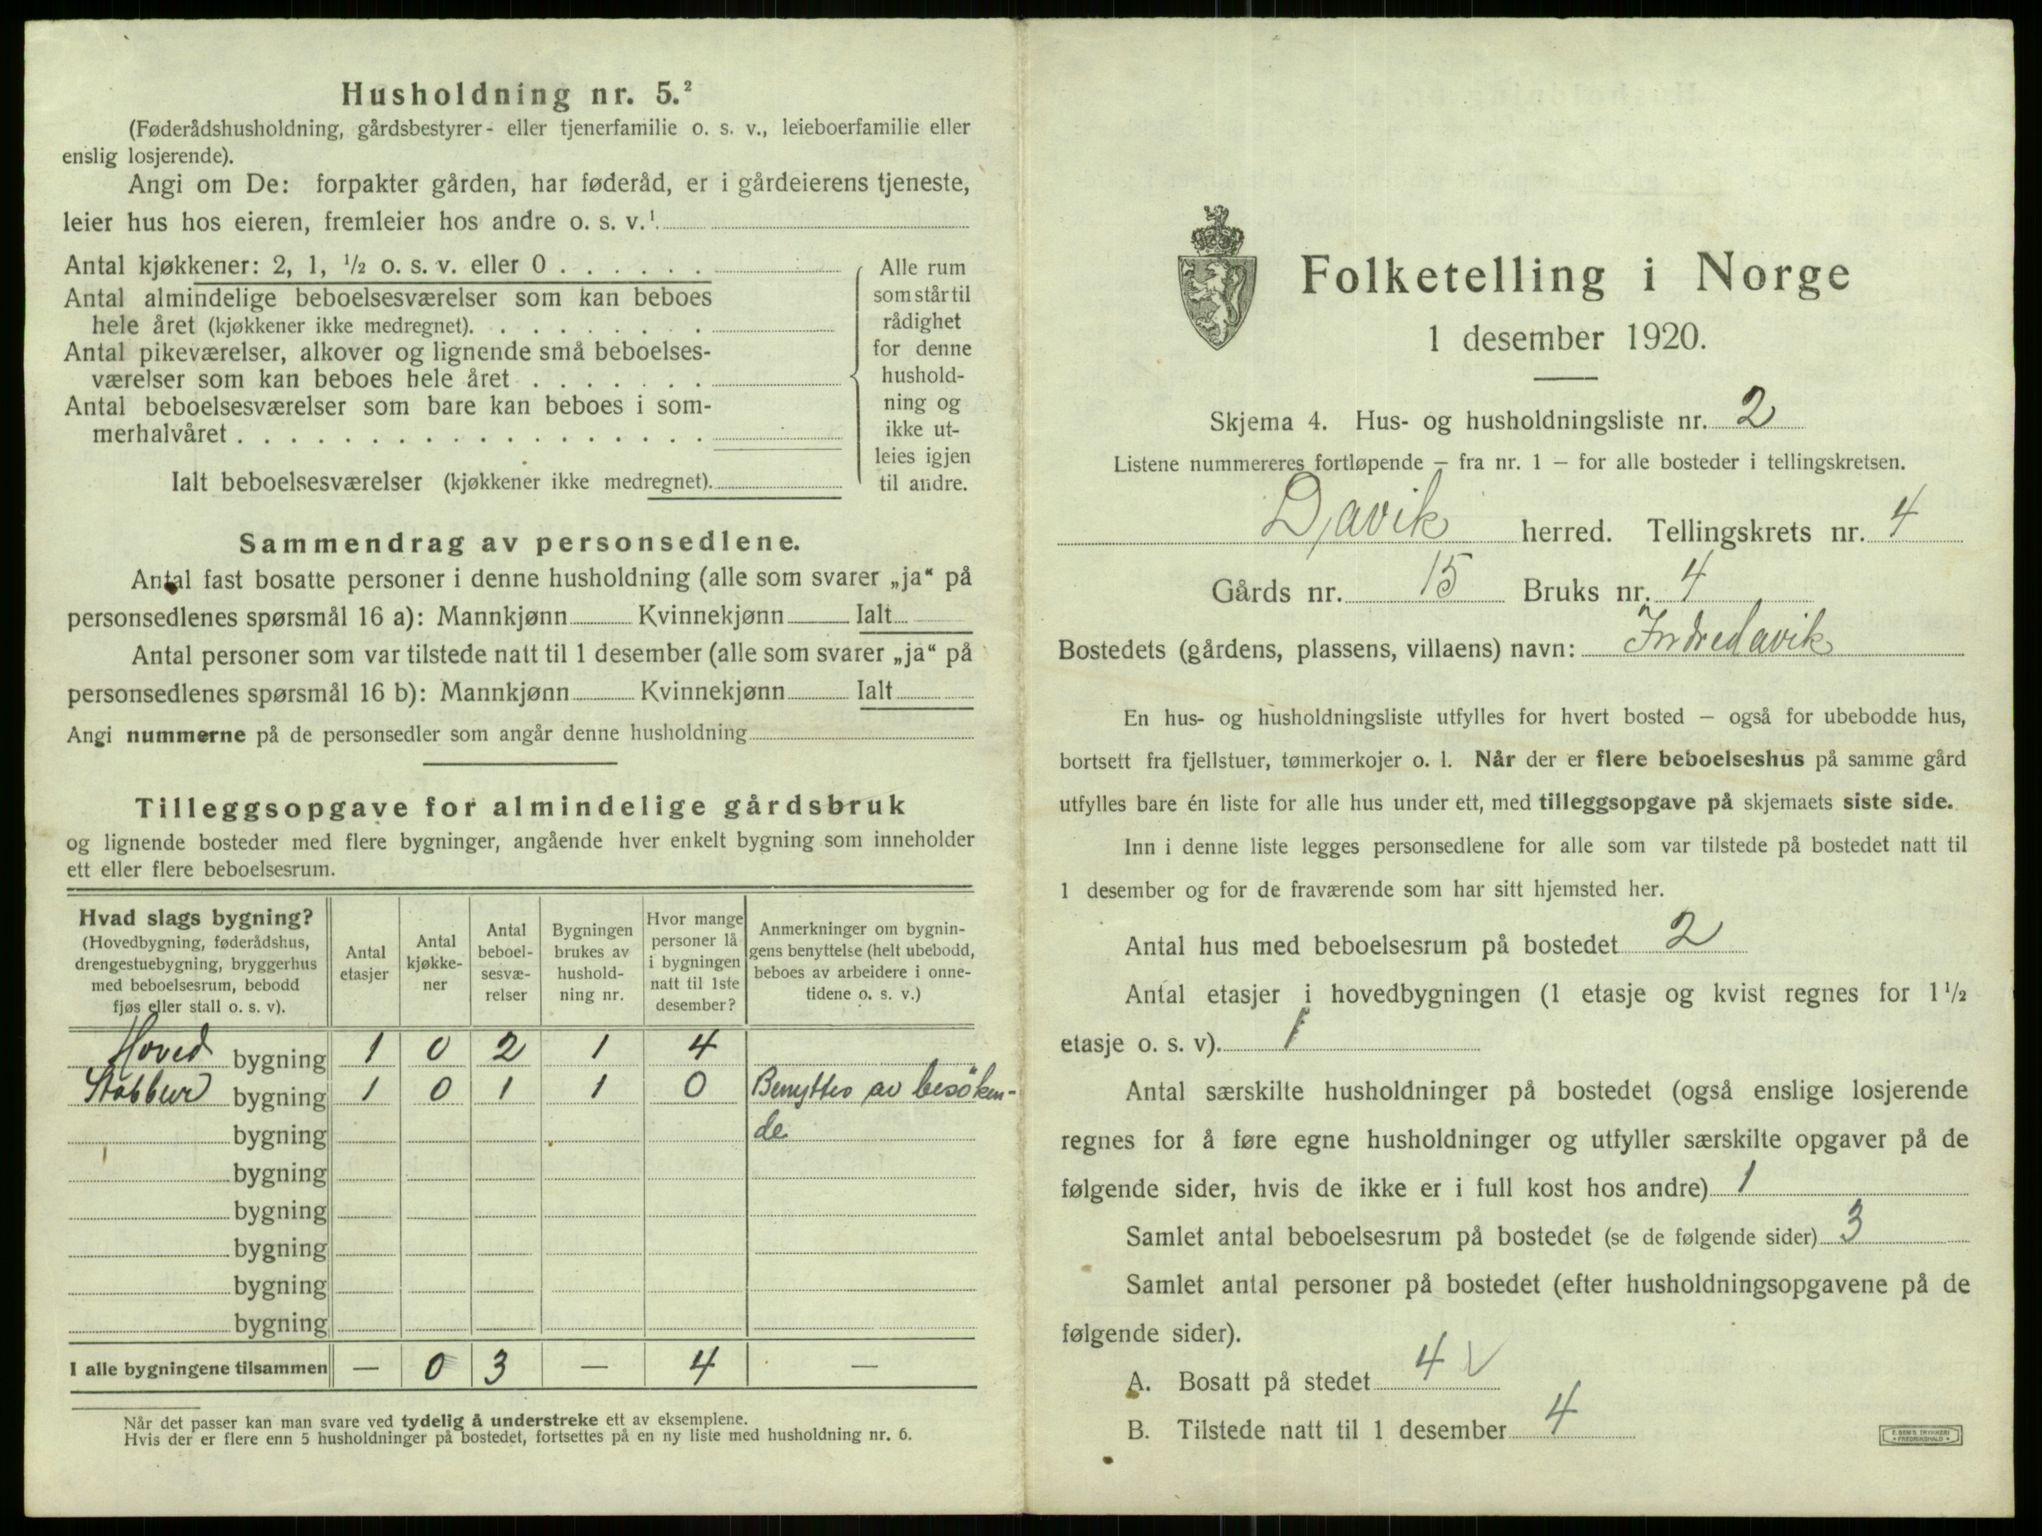 Husholdning nr. 5.²
(Føderådshusholdning, gårdsbestyrer- eller tjenerfamilie o. s. v., leieboerfamilie eller
enslig losjerende).
Angi om De: forpakter gården, har føderåd, er i gårdeierens tjeneste,
leier hus hos eieren, fremleier hos andre o. s. v.¹
Antal kjøkkener: 2, 1, ½ o. s. v. eller 0
Antal almindelige beboelsesværelser som kan beboes
hele året (kjøkkener ikke medregnet).
Antal pikeværelser, alkover og lignende små beboelses-
værelser som kan beboes hele året
Antal beboelsesværelser som bare kan beboes i som-
merhalvåret
Ialt beboelsesværelser (kjøkkener ikke medregnet).
Alle rum
som står til
rådighet
for denne
hushold-
ning og
ikke ut-
leies igjen
til andre.
Sammendrag av personsedlene.
Antal fast bosatte personer i denne husholdning (alle som svarer „ja“ på
personsedlenes spørsmål 16 a): Mannkjønn Kvinnekjønn Ialt
Antal personer som var tilstede natt til 1 desember (alle som svarer „ja“ på
personsedlenes spørsmål 16 b): Mannkjønn Kvinnekjønn Ialt
Angi nummerne på de personsedler som angår denne husholdning
Tilleggsopgave for almindelige gårdsbruk
og lignende bosteder med flere bygninger, angående hver enkelt bygning som inneholder
ett eller flere beboelsesrum.
Hvad slags bygning?
(Hovedbygning, føderådshus,
drengestuebygning, bryggerhus
med beboelsesrum, bebodd
fjøs eller stall o. s. v).
Antal
etasjer
Antal
kjøkke-
ner
Antal
beboel-
sesvæ-
relser
Bygningen
brukes av
hushold-
ning nr.
Hvor mange
personer lå
i bygningen
natt til 1ste
desember?
Anmerkninger om bygnin-
gens benyttelse (helt ubebodd,
beboes av arbeidere i onne-
tidene o. s. v.)
Hoved bygning 1 0 2 1 4
Stabbur bygning 1 0 1 1 0 Benyttes av besöken-
bygning de
bygning
bygning
bygning
bygning
bygning
I alle bygningene tilsammen — 0 3 — 4 —
Når det passer kan man svare ved tydelig å understreke ett av eksemplene.
Hvis der er flere enn 5 husholdninger på bostedet, fortsettes på en ny liste med husholdning nr. 6.
Folketelling i Norge
1 desember 1920.
Skjema 4. Hus- og husholdningsliste nr. 2
Listene nummereres fortløpende – fra nr. 1 – for alle bosteder i tellingskretsen.
Davik herred. Tellingskrets nr. 4
Gårds nr. 15 Bruks nr. 4
Bostedets (gårdens, plassens, villaens) navn: Indredavik
En hus- og husholdningsliste utfylles for hvert bosted – også for ubebodde hus,
bortsett fra fjellstuer, tømmerkojer o. l. Når der er flere beboelseshus på samme gård
utfylles bare én liste for alle hus under ett, med tilleggsopgave på skjemaets siste side.
Inn i denne liste legges personsedlene for alle som var tilstede på bostedet natt til
1 desember og for de fraværende som har sitt hjemsted her.
Antal hus med beboelsesrum på bostedet 2
Antal etasjer i hovedbygningen (1 etasje og kvist regnes for 1½
etasje o. s. v). 1
Antal særskilte husholdninger på bostedet (også enslige losjerende
regnes for å føre egne husholdninger og utfyller særskilte opgaver på de
følgende sider, hvis de ikke er i full kost hos andre) 1
Samlet antal beboelsesrum på bostedet (se de følgende sider) 3
Samlet antal personer på bostedet (efter husholdningsopgavene på de
følgende sider).
A. Bosatt på stedet 4 √
B. Tilstede natt til 1 desember 4